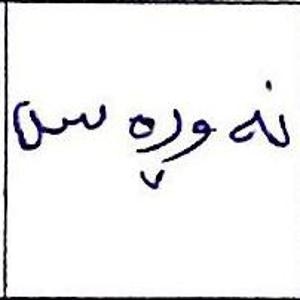 نەوڕەس